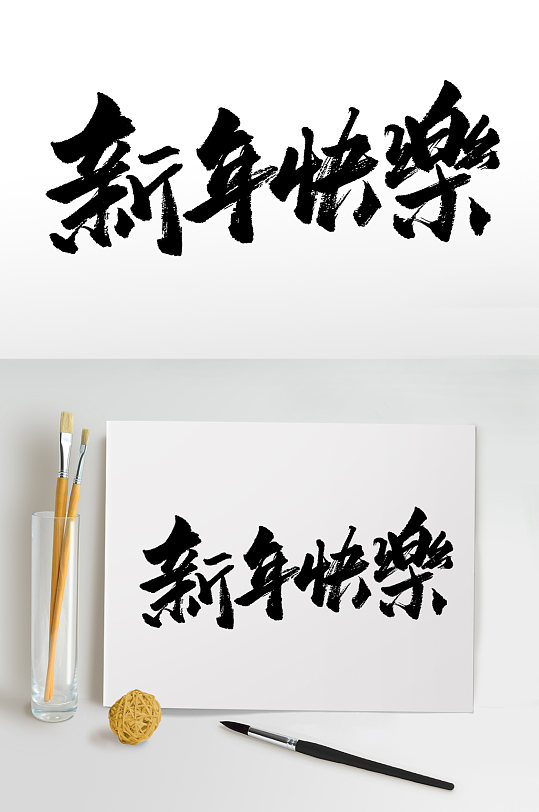 新年快樂
新年快樂